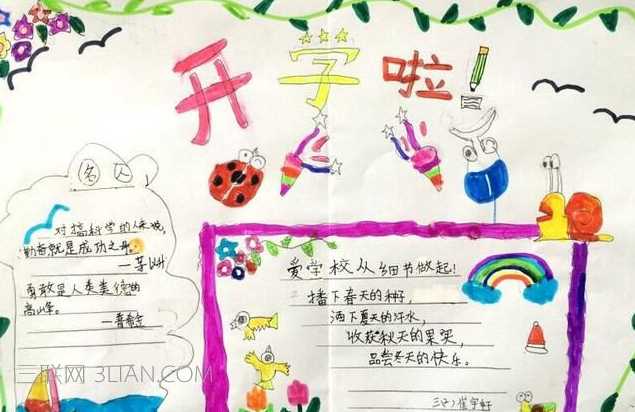 开学啦!
名人
对搞科学的人来说,
勤奋就是成功之母。
—茅以升
勇敢是人类美德的
高峰。
—普希金
爱学校从细节做起!
播下春天的种子,
洒下夏天的汗水,
收获秋天的果实,
品尝冬天的快乐。
三(2)崔宇轩
三联网 3LIAN.COM